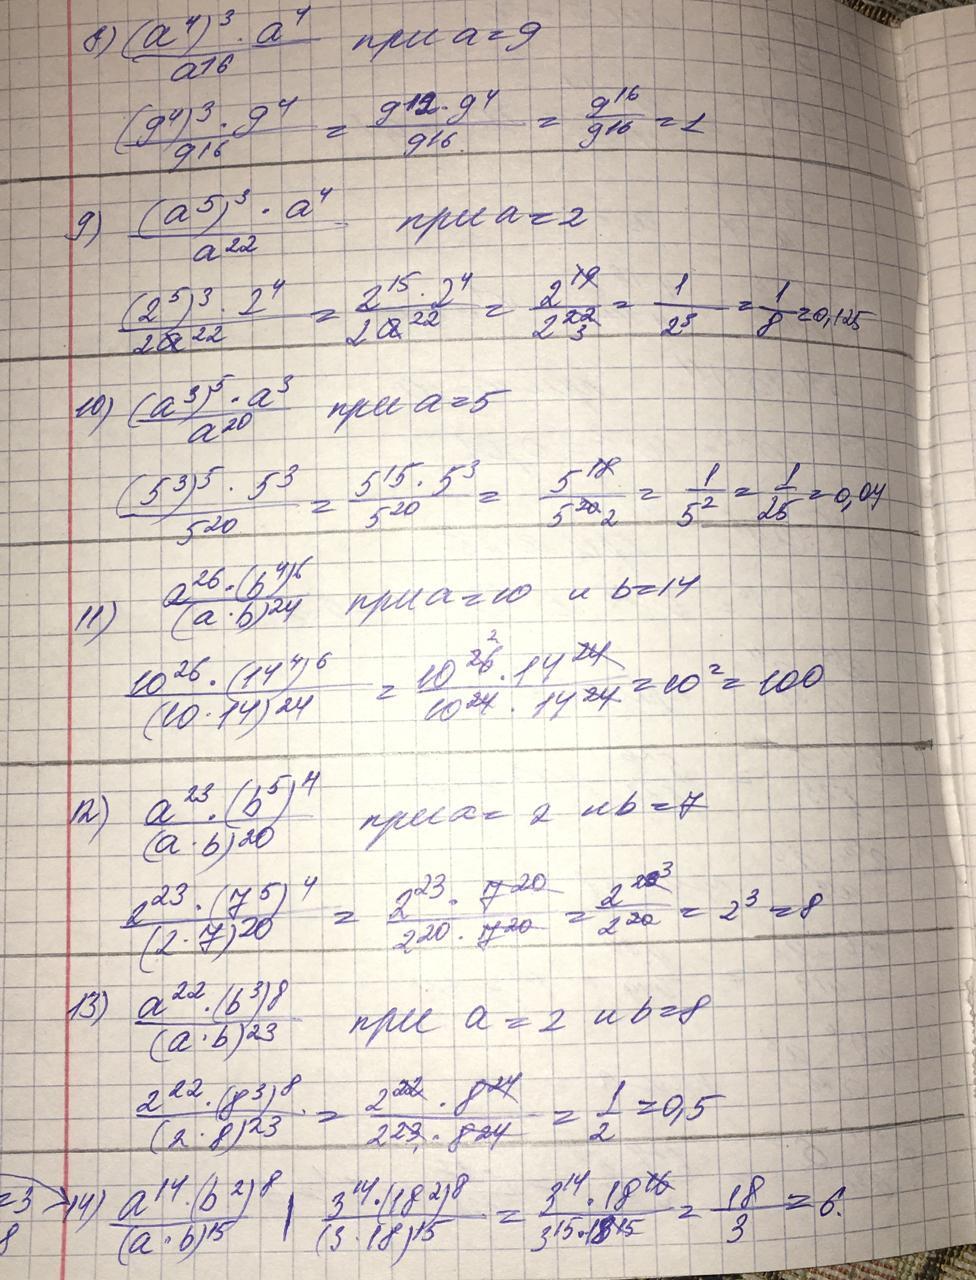 8) (a⁴)³ · a⁴ / a16 при a=9
(9⁴)³ · 9⁴ / 9¹⁶ = 9¹² · 9⁴ / 9¹⁶ = 9¹⁶ / 9¹⁶ = 1
9) (a⁵)³ · a⁴ / a²² при a=2
(2⁵)³ · 2⁴ / 2²² = 2¹⁵ · 2⁴ / 2²² = 2¹⁹ / 2²² 3 = 1 / 2³ = 1/8 = 0,125
10) (a³)⁵ · a³ / a²⁰ при a=5
(5³)⁵ · 5³ / 5²⁰ = 5¹⁵ · 5³ / 5²⁰ = 5¹⁸ / 5²⁰ 2 = 1 / 5² = 1/25 = 0,04
11) a²⁶ · (b⁴)⁶ / (a · b)²⁴ при a=10 и b=14
10²⁶ · (14⁴)⁶ / (10 · 14)²⁴ = 10²⁶ 2 · 14²⁴ / 10²⁴ · 14²⁴ = 10² = 100
12) a²³ · (b⁵)⁴ / (a · b)²⁰ при a= 2 и b=7
2²³ · (7⁵)⁴ / (2 · 7)²⁰ = 2²³ · 7²⁰ / 2²⁰ · 7²⁰ = 2²³ 3 / 2²⁰ = 2³ = 8
13) a²² · (b³)⁸ / (a · b)²³ при a = 2 и b=8
2²² · (8³)⁸ / (2 · 8)²³ = 2²² · 8²⁴ / 2²³ · 8²⁴ = 1/2 = 0,5
=3 14) a¹⁴ · (b²)⁸ / (a · b)¹⁵ | 3¹⁴ · (18²)⁸ / (3 · 18)¹⁵ = 3¹⁴ · 18¹⁶ / 3¹⁵ · 18¹⁵ = 18/3 = 6.
8